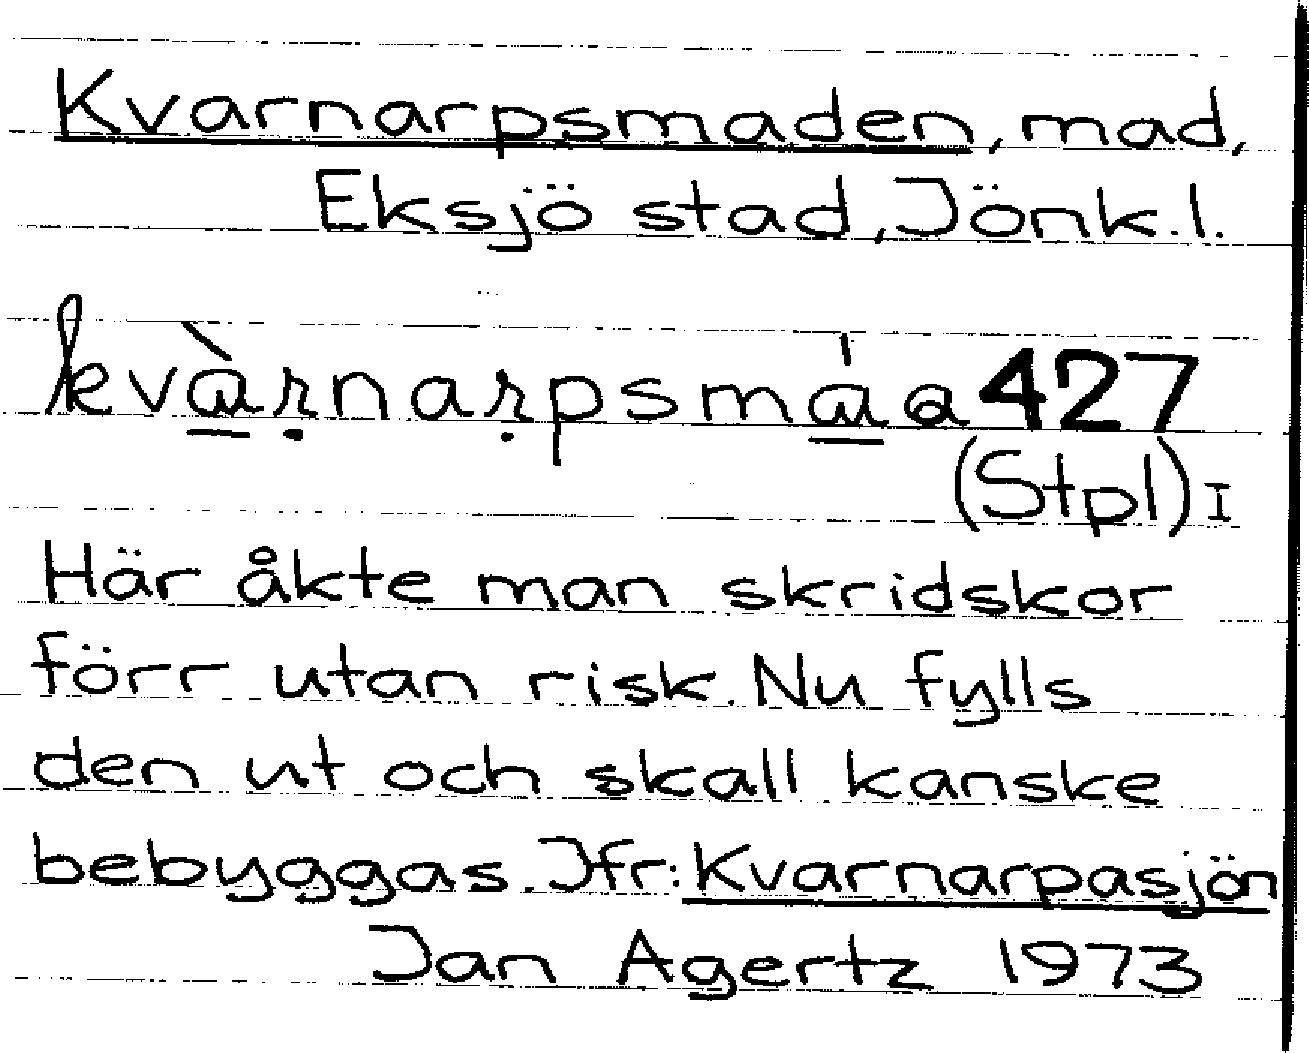 Kvarnarpsmaden, mad,
Eksjö stad, Jönk.l.
kvàrnaṛpsmáa 427
(Stpl) I
Här åkte man skridskor
förr utan risk. Nu fylls
den ut och skall kanske
bebyggas. Jfr: Kvarnarpasjön
Jan Agertz 1973